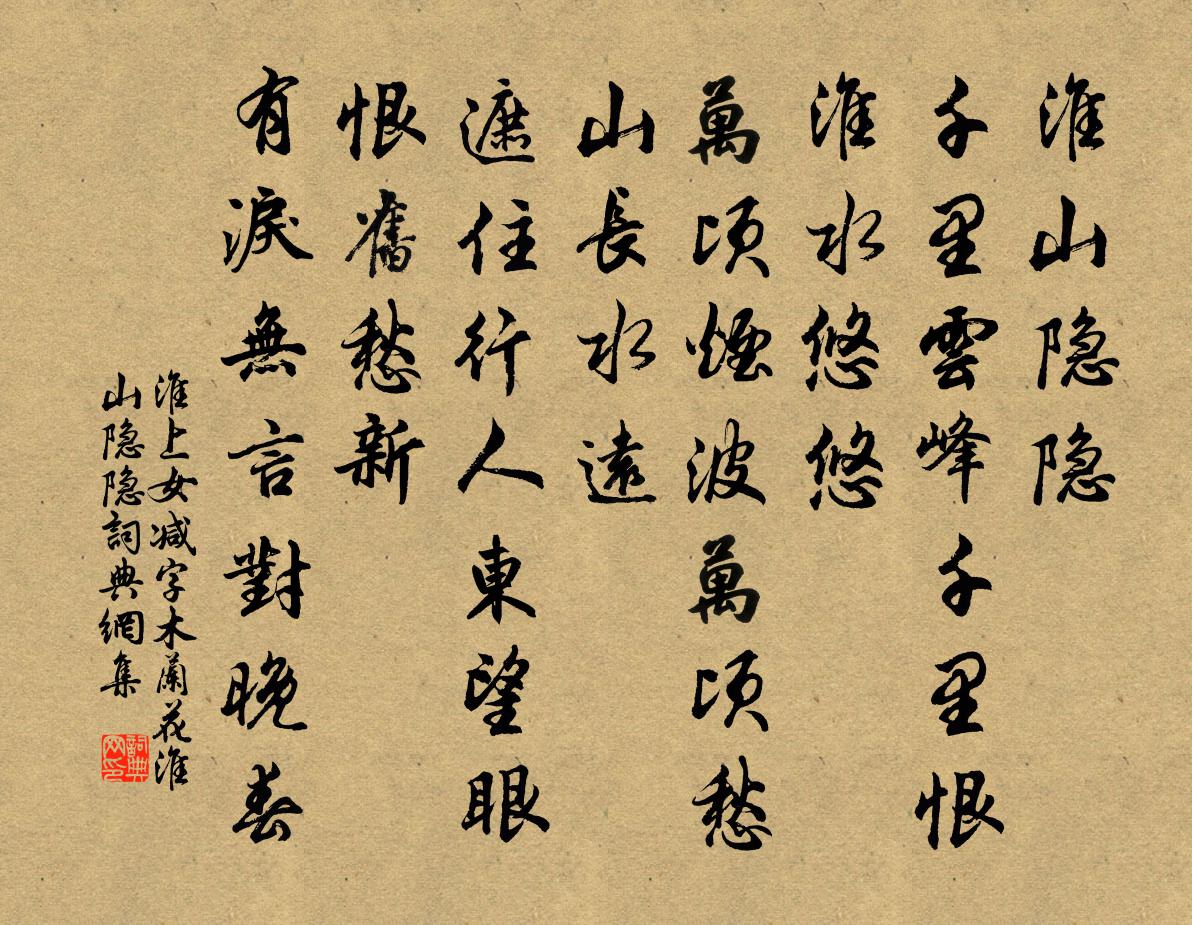 淮山隐隐
千里雲峰千里恨
淮水悠悠
萬頃煙波萬頃愁
山長水遠
遮住行人東望眼
恨舊愁新
有淚無言對晚春
淮上女减字木蘭花淮
山隐隐詞典網集
詞典
网印